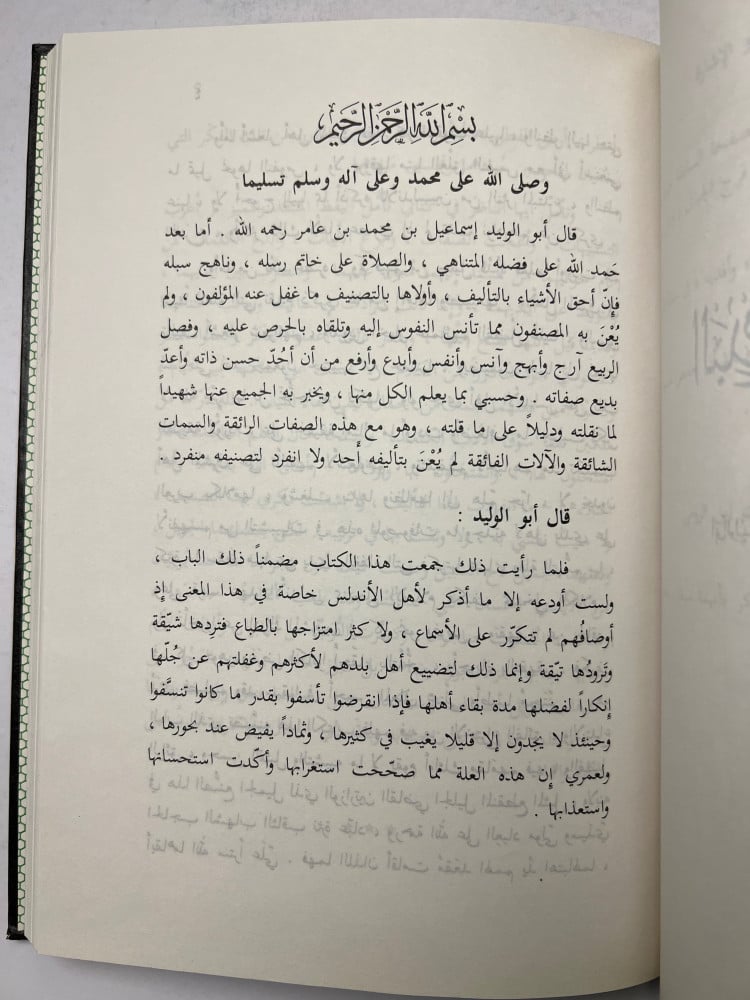 بِسْمِ اللَّهِ الرَّحْمٰنِ الرَّحِيمِ
وصلى الله على محمد وعلى آله وسلم تسليما
قال أبو الوليد إسماعيل بن محمد بن عامر رحمه الله . أما بعد
حَمد الله على فضله المتناهي ، والصلاة على خاتم رسله ، وناهج سبله
فإنّ أحق الأشياء بالتأليف ، وأولاها بالتصنيف ما غفل عنه المؤلفون ، ولم
يُعْنَ به المصنفون مما تأنس النفوس إليه وتلقاه بالحرص عليه ، وفصل
الربيع آرج وأبهج وآنس وأنفس وأبدع وأرفع من أن أحُدّ حسن ذاته وأعدّ
بديع صفاته . وحسبي بما يعلم الكل منها ، ويخبر به الجميع عنها شهيداً
لما نقلته ودليلاً على ما قلته ، وهو مع هذه الصفات الرائقة والسمات
الشائقة والآلات الفائقة لم يُعْنَ بتأليفه أَحد ولا انفرد لتصنيفه منفرد .
قال أبو الوليد :
فلما رأيت ذلك جمعت هذا الكتاب مضمناً ذلك الباب ،
ولست أودعه إلا ما أذكر لأهل الأندلس خاصة في هذا المعنى إذ
أوصافُهم لم تتكرّر على الأسماع ، ولا كثر امتزاجها بالطباع فتردها شيّقة
وتَرودُها تيّقة وإنما ذلك لتضييع أهل بلدهم لأكثرهم وغفلتهم عن جُلّها
إنكاراً لفضلها مدة بقاء أهلها فإذا انقرضوا تأسفوا بقدر ما كانوا تنسَّفوا
وحينئذ لا يجدون إلا قليلا يغيب في كثيرها ، وثماداً يفيض عند بحورها ،
ولعمري إن هذه العلة مما صحّحت استغرابها وأكّدت استحسانها
واستعذابها .